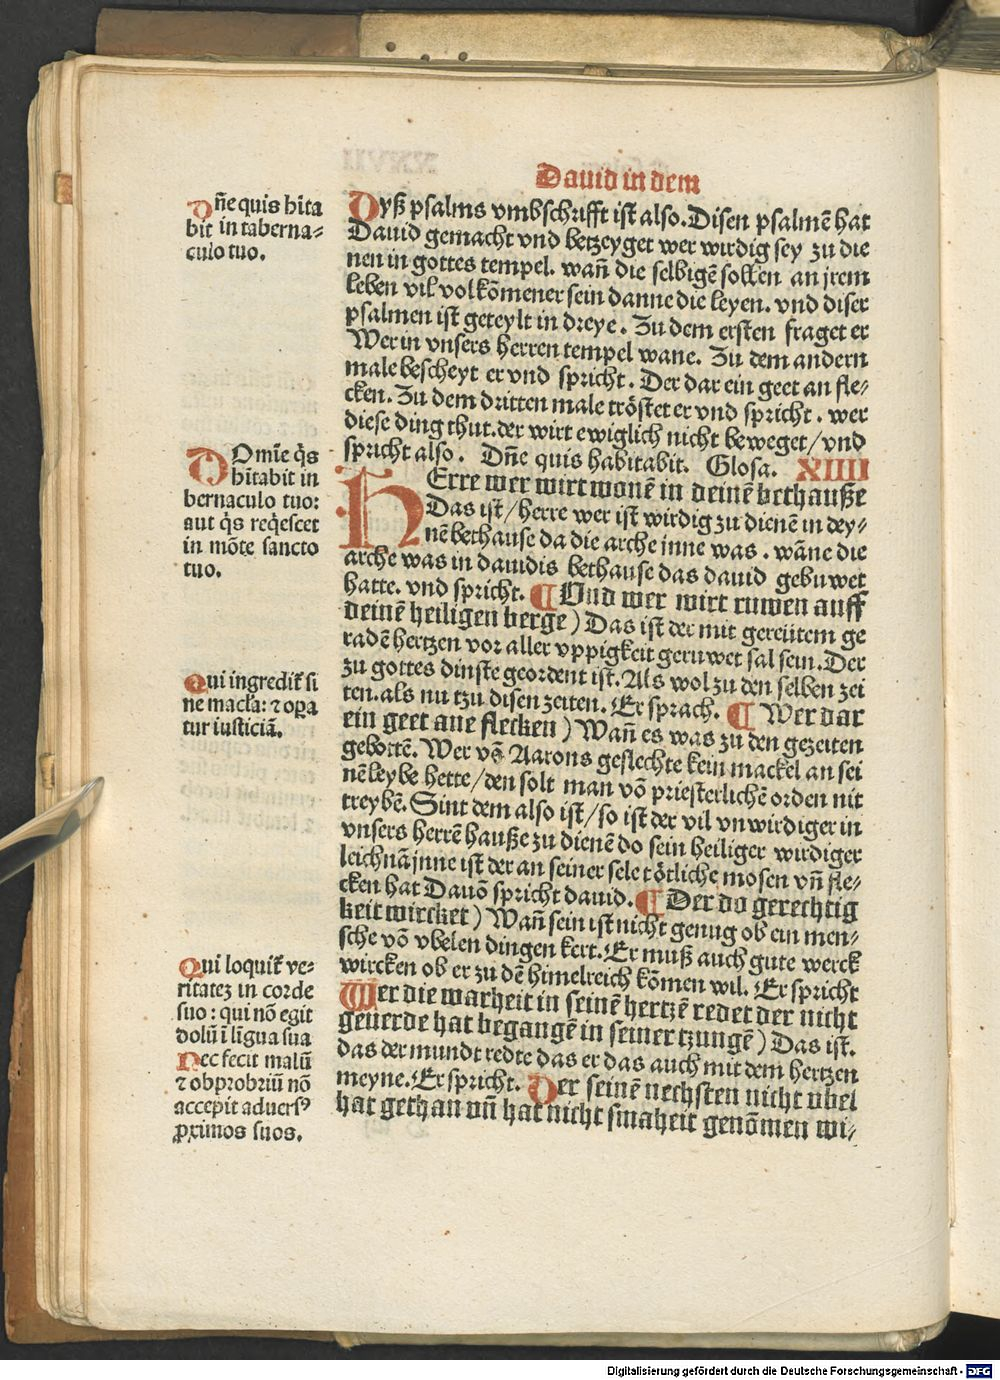 Dauid in dem
Dyß psalms vmbschrifft ist also. Disen psalmē hat
Dauid gemacht vnd betzeyget wer wirdig sey zu die
nen in gottes tempel. wañ die selbigē sollen an jrem
leben vil volkōmener sein danne die leyen. vnd diser
psalmen ist geteylt in dreye. Zu dem ersten fraget er
Wer in vnsers herren tempel wane. Zu dem andern
male bescheyt er vnd spricht. Der dar ein geet an fle⸗
cken. Zu dem dritten male tröstet er vnd spricht. wer
diese ding thut. der wirt ewiglich nicht beweget/ vnd
spricht also. Dñe quis habitabit. Glosa. XIIII
HErre wer wirt wonē in deinē bethauße
Das ist/ herre wer ist wirdig zu dienē in dey⸗
nē bethause da die arche inne was. wāne die
arche was in dauidis bethause das dauid gebuwet
hatte. vnd spricht. ¶ Vnd wer wirt ruwen auff
deinē heiligen berge) Das ist der mit gereütem ge
radē hertzen vor aller vppigkeit geruwet sal sein. Der
zu gottes dinste geordent ist. Als wol zu den selben zei
ten. als nu tzu disen zeiten. Er sprach. ¶ Wer dar
ein geet ane flecken) Wañ es was zu den gezeiten
gebottē. Wer vō Aarons geslechte kein mackel an sei
nē leybe hette/ den solt man vō priesterlichē orden nit
treybē. Sint dem also ist/ so ist der vil vnwirdiger in
vnsers herrē hauße zu dienē do sein heiliger wirdiger
leichnā jnne ist der an seiner sele tötliche mosen vñ fle⸗
cken hat Dauō spricht dauid. ¶ Der do gerechtig
keit wircket) Wañ sein ist nicht genug ob ein men⸗
sche vō vbelen dingen kert. Er muß auch gute werck
wircken ob er zu dē himelreich kōmen wil. Er spricht
Wer die warheit in seinē hertzē redet der nicht
geuerde hat begangē in seiner tzungē) Das ist.
das der mundt redte das er das auch mit dem hertzen
meyne. Er spricht. Der seinē nechsten nicht vbel
hat gethan vñ hat nicht smaheit genōmen wi⸗
Dñe quis hīta
bit in taberna⸗
culo tuo.
DOmīe q̄s
hītabit in
bernaculo tuo:
aut q̄s reqescet
in mōte sancto
tuo.
Qui ingredit̄ si
ne macła: ⁊ oꝑa
tur iusticiā.
Qui loquit̄ ve⸗
ritateʒ in corde
suo: qui nō egit
dolū ī līgua sua
Nec fecit malū
⁊ obprobriū nō
accepit aduersꝰ
ꝓximos suos.
Digitalisierung gefördert durch die Deutsche Forschungsgemeinschaft - DFG